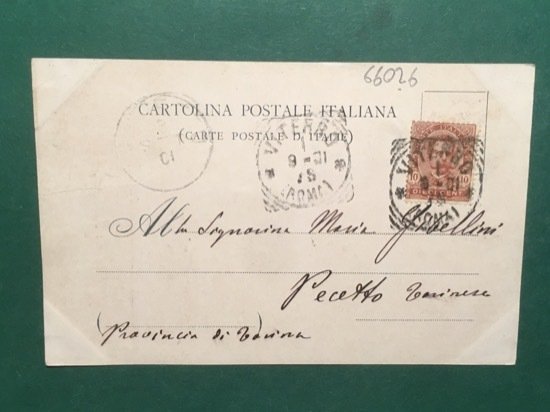 66026
CARTOLINA POSTALE ITALIANA
(CARTE POSTALE D'ITALIE)
01
VITERBO
8 - 01
(ROMA)
10 10
VITERBO
8 - 01
(ROMA)
Alla Signorina Maria
Pecetto Torinese
(Provincia di Torino)